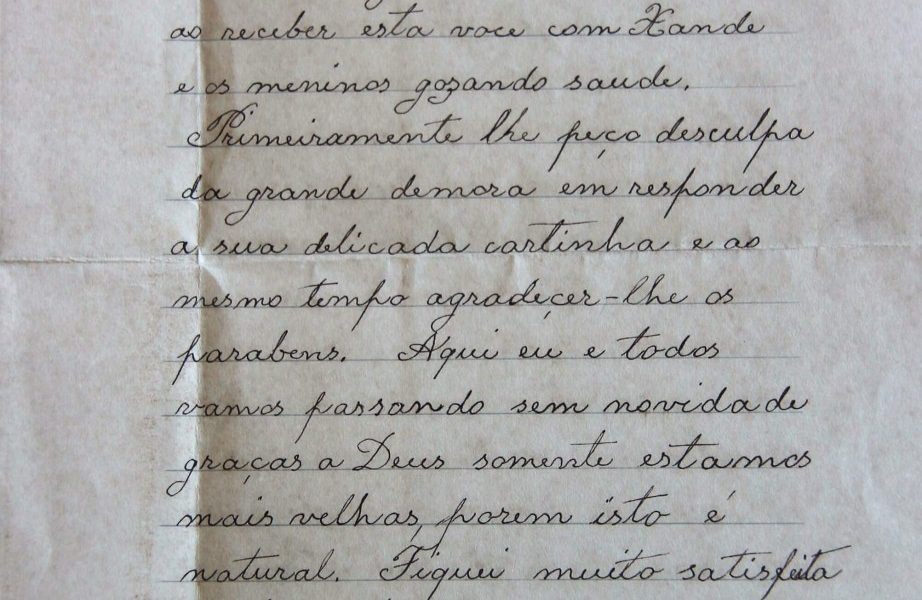 ao receber esta voce com Xande
e os meninos gozando saude.
Primeiramente lhe peço desculpa
da grande demora em responder
a sua delicada cartinha e ao
mesmo tempo agradeçer-lhe os
parabens. Aqui eu e todos
vamos passando sem novidade
graças a Deus somente estamos
mais velhas, porem isto é
natural. Fiquei muito satisfeita